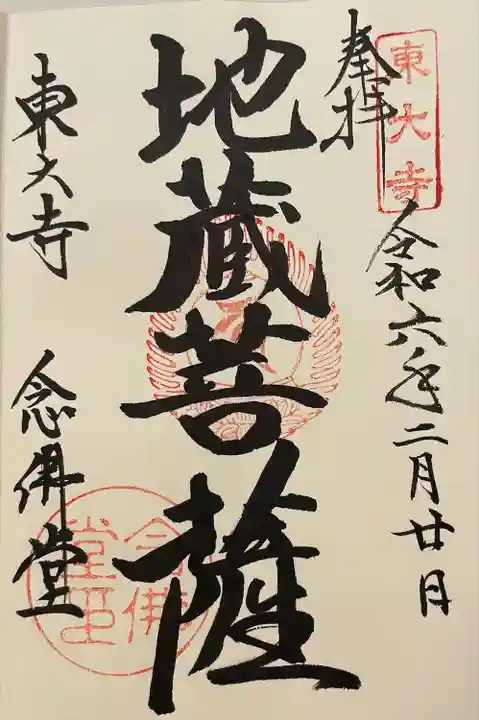 奉拝
東大寺
令和六年二月廿日
地蔵菩薩
東大寺 念佛堂
念佛堂印